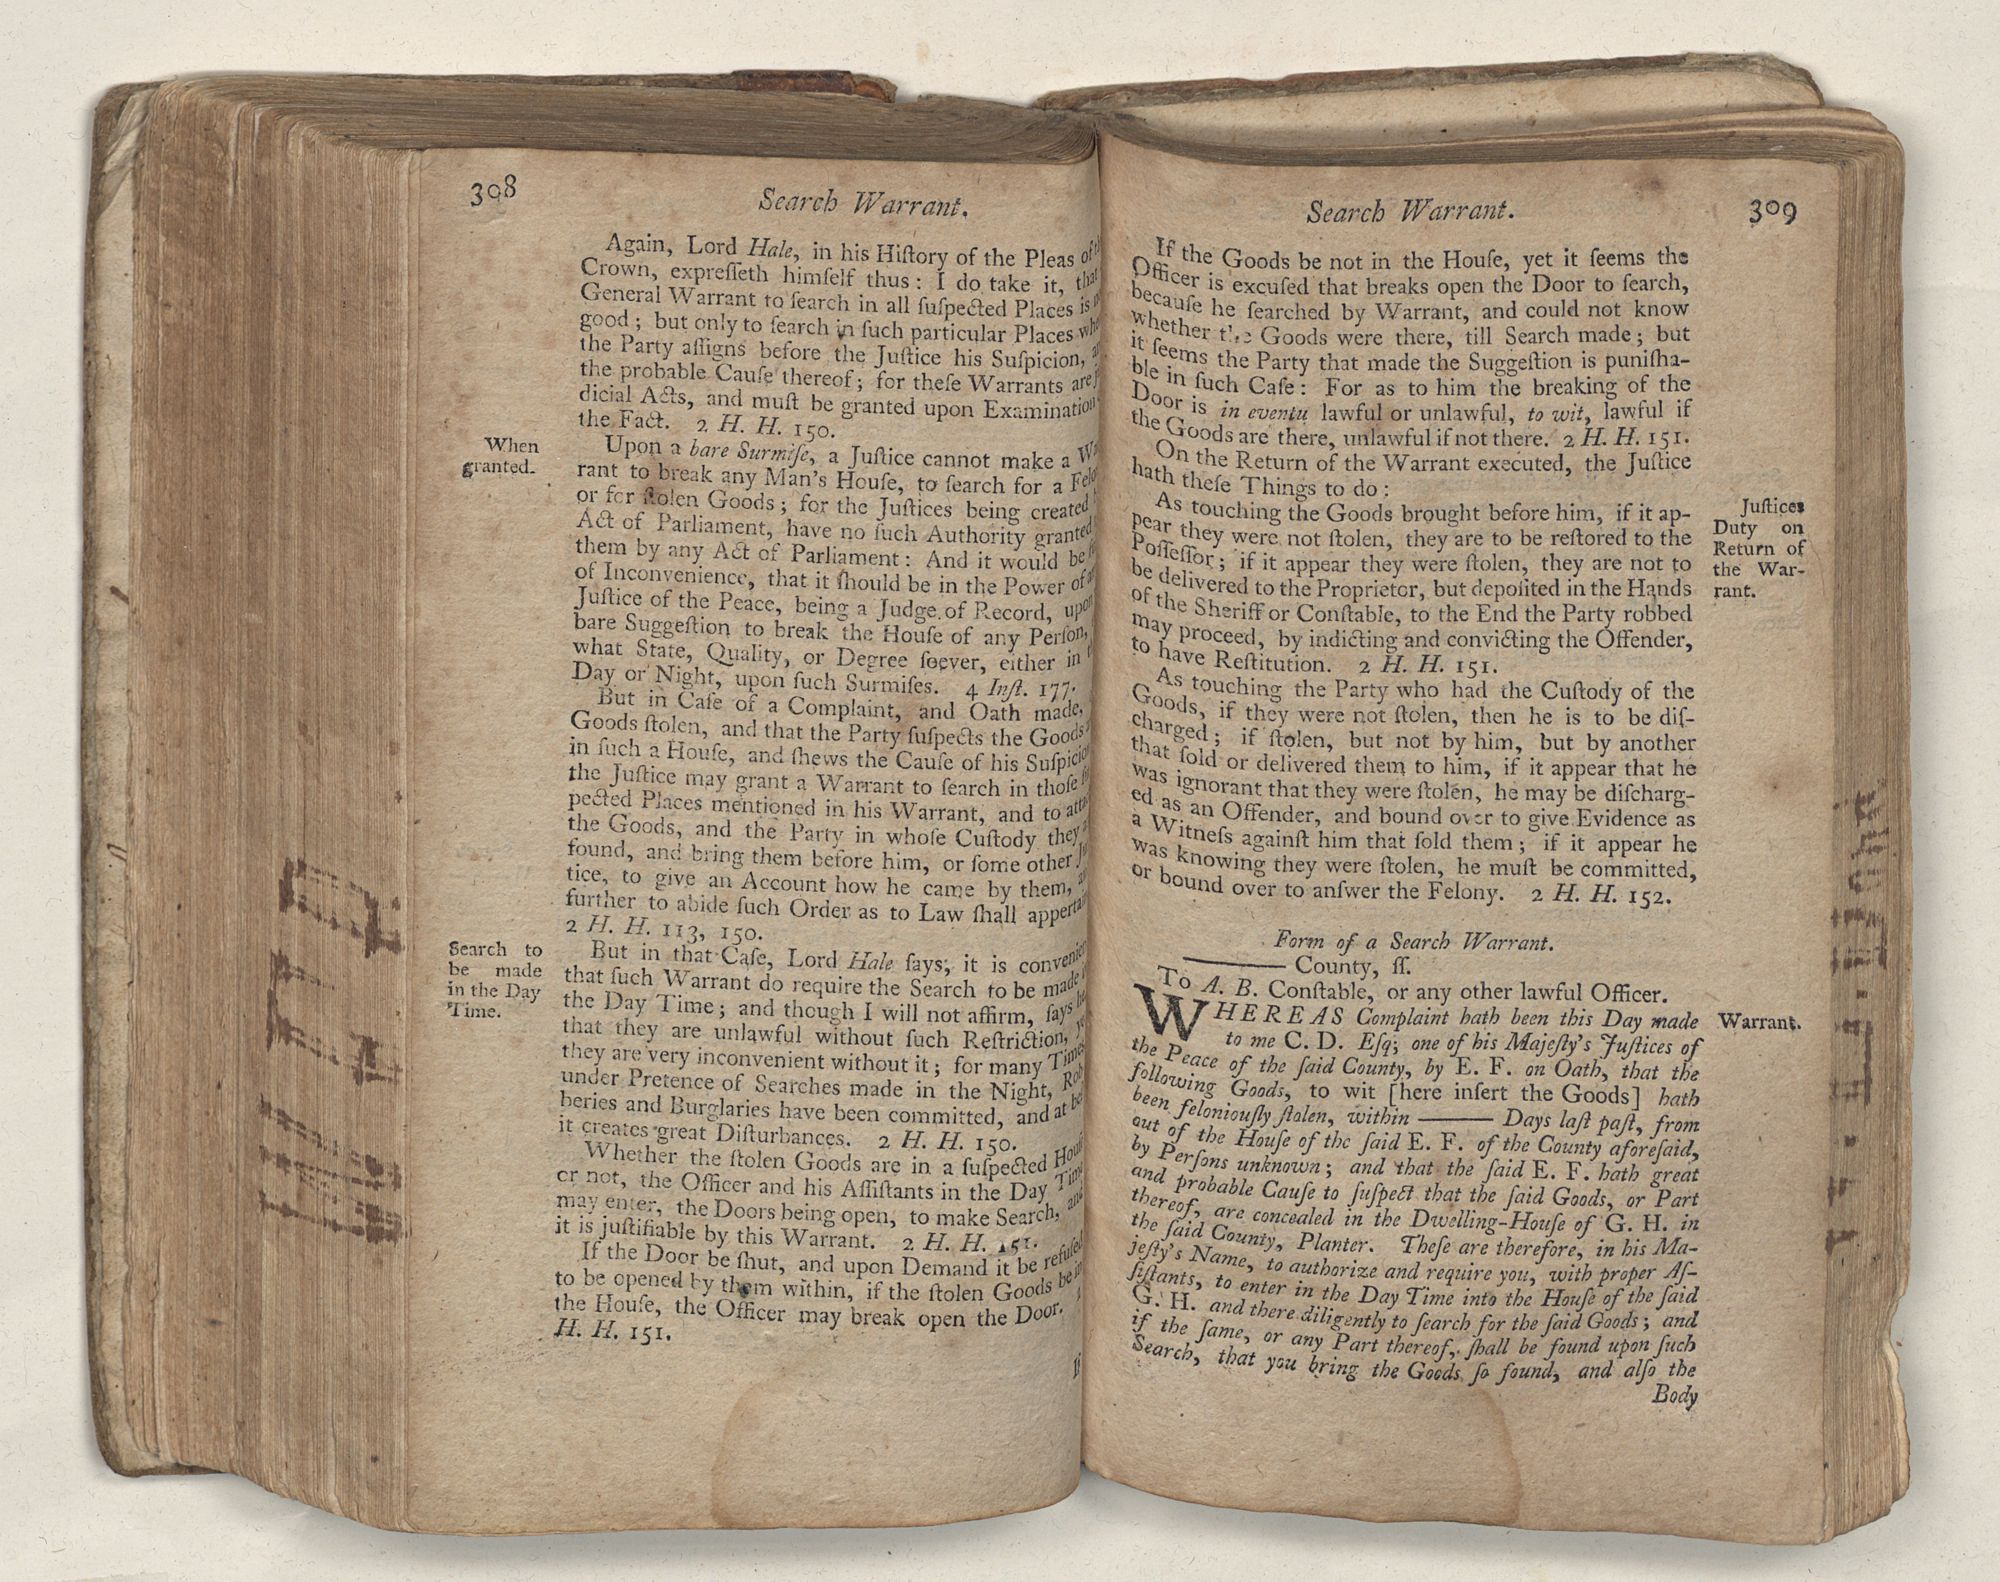 308
Search Warrant.
Again, Lord Hale, in his Hiſtory of the Pleas of
Crown, expreſſeth himſelf thus: I do take it, that
General Warrant to ſearch in all ſuſpected Places is
good; but only to ſearch in ſuch particular Places
the Party aſſigns before the Juſtice his Suſpicion,
the probable Cauſe thereof; for theſe Warrants are
dicial Acts, and muſt be granted upon Examination
the Fact. 2 H. H. 150.
When
granted.
Upon a bare Surmiſe, a Juſtice cannot make a
rant to break any Man's Houſe, to ſearch for a
or for ſtolen Goods; for the Juſtices being created
Act of Parliament, have no ſuch Authority granted
them by any Act of Parliament: And it would be
of Inconvenience, that it ſhould be in the Power of
Juſtice of the Peace, being a Judge of Record, upon
bare Suggeſtion to break the Houſe of any Perſon,
what State, Quality, or Degree ſoever, either in
Day or Night, upon ſuch Surmiſes. 4 Inſt. 177.
But in Caſe of a Complaint, and Oath made,
Goods ſtolen, and that the Party ſuſpects the Goods
in ſuch a Houſe, and ſhews the Cauſe of his
the Juſtice may grant a Warrant to ſearch in thoſe
pected Places mentioned in his Warrant, and to
the Goods, and the Party in whoſe Cuſtody they
found, and bring them before him, or ſome other
tice, to give an Account how he came by them,
further to abide ſuch Order as to Law ſhall
2 H. H. 113, 150.
Search to
be made
in the Day
Time.
But in that Caſe, Lord Hale ſays, it is
that ſuch Warrant do require the Search to be made
the Day Time; and though I will not affirm, ſays
that they are unlawful without ſuch Reſtriction,
they are very inconvenient without it; for many
under Pretence of Searches made in the Night, Rob
beries and Burglaries have been committed, and at
it creates great Diſturbances. 2 H. H. 150.
Whether the ſtolen Goods are in a ſuſpected
or not, the Officer and his Aſſiſtants in the Day
may enter, the Doors being open, to make Search, and
it is juſtifiable by this Warrant. 2 H. H. 151.
If the Door be ſhut, and upon Demand it be refuſed
to be opened by them within, if the ſtolen Goods be in
the Houſe, the Officer may break open the Door.
H. H. 151.
If
Search Warrant.
309
If the Goods be not in the Houſe, yet it ſeems the
Officer is excuſed that breaks open the Door to ſearch,
becauſe he ſearched by Warrant, and could not know
whether the Goods were there, till Search made; but
it ſeems the Party that made the Suggeſtion is puniſha-
ble in ſuch Caſe: For as to him the breaking of the
Door is in eventu lawful or unlawful, to wit, lawful if
the Goods are there, unlawful if not there. 2 H. H. 151.
On the Return of the Warrant executed, the Juſtice
hath theſe Things to do:
Juſtices
Duty on
Return of
the War-
rant.
As touching the Goods brought before him, if it ap-
pear they were not ſtolen, they are to be reſtored to the
Poſſeſſor; if it appear they were ſtolen, they are not to
be delivered to the Proprietor, but depoſited in the Hands
of the Sheriff or Conſtable, to the End the Party robbed
may proceed, by indicting and convicting the Offender,
to have Reſtitution. 2 H. H. 151.
As touching the Party who had the Cuſtody of the
Goods, if they were not ſtolen, then he is to be diſ-
charged; if ſtolen, but not by him, but by another
that ſold or delivered them to him, if it appear that he
was ignorant that they were ſtolen, he may be diſcharg-
ed as an Offender, and bound over to give Evidence as
a Witneſs againſt him that ſold them; if it appear he
was knowing they were ſtolen, he muſt be committed,
or bound over to anſwer the Felony. 2 H. H. 152.
Form of a Search Warrant.
——— County, ſſ.
To A. B. Conſtable, or any other lawful Officer.
Warrant.
WHEREAS Complaint hath been this Day made
to me C. D. Eſq; one of his Majeſty's Juſtices of
the Peace of the ſaid County, by E. F. on Oath, that the
following Goods, to wit [here inſert the Goods] hath
been feloniouſly ſtolen, within ——— Days laſt paſt, from
out of the Houſe of the ſaid E. F. of the County aforeſaid,
by Perſons unknown; and that the ſaid E. F. hath great
and probable Cauſe to ſuſpect that the ſaid Goods, or Part
thereof, are concealed in the Dwelling-Houſe of G. H. in
the ſaid County, Planter. Theſe are therefore, in his Ma-
jeſty's Name, to authorize and require you, with proper Aſ-
ſiſtants, to enter in the Day Time into the Houſe of the ſaid
G. H. and there diligently to ſearch for the ſaid Goods; and
if the ſame, or any Part thereof, ſhall be found upon ſuch
Search, that you bring the Goods ſo found, and alſo the
Body